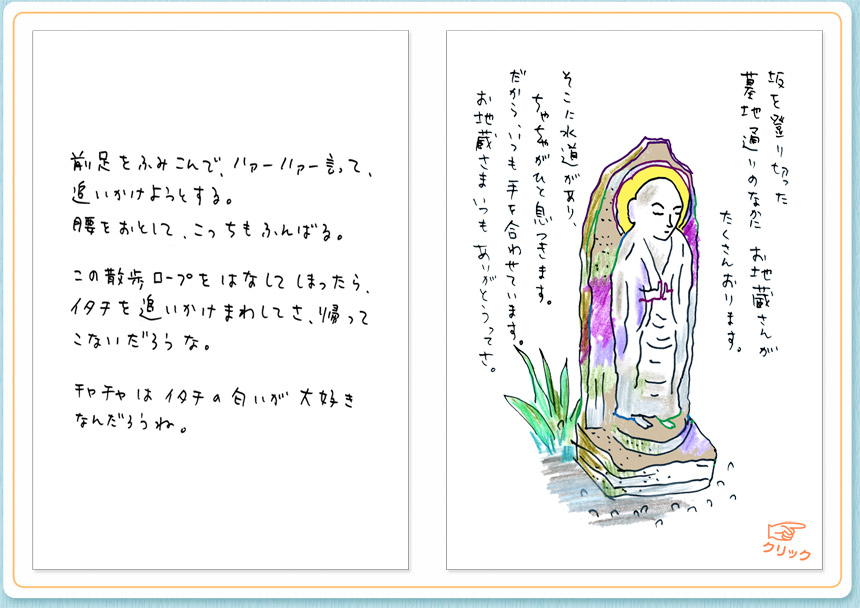 前足をふみこんで、ハァーハァー言って、
追いかけようとする。
腰をおとして、こっちもふんばる。
この散歩ロープをはなしてしまったら、
イタチを追いかけまわしてさ、帰って
こないだろうな。
チャチャはイタチの匂いが大好き
なんだろうね。
坂を登り切った
墓地通りのなかに お地蔵さんが
たくさんおります。
そこに水道があり、
ちゃちゃがひと息つきます。
だから、いつも手を合わせています。
お地蔵さまいつもありがとうってさ。
クリック